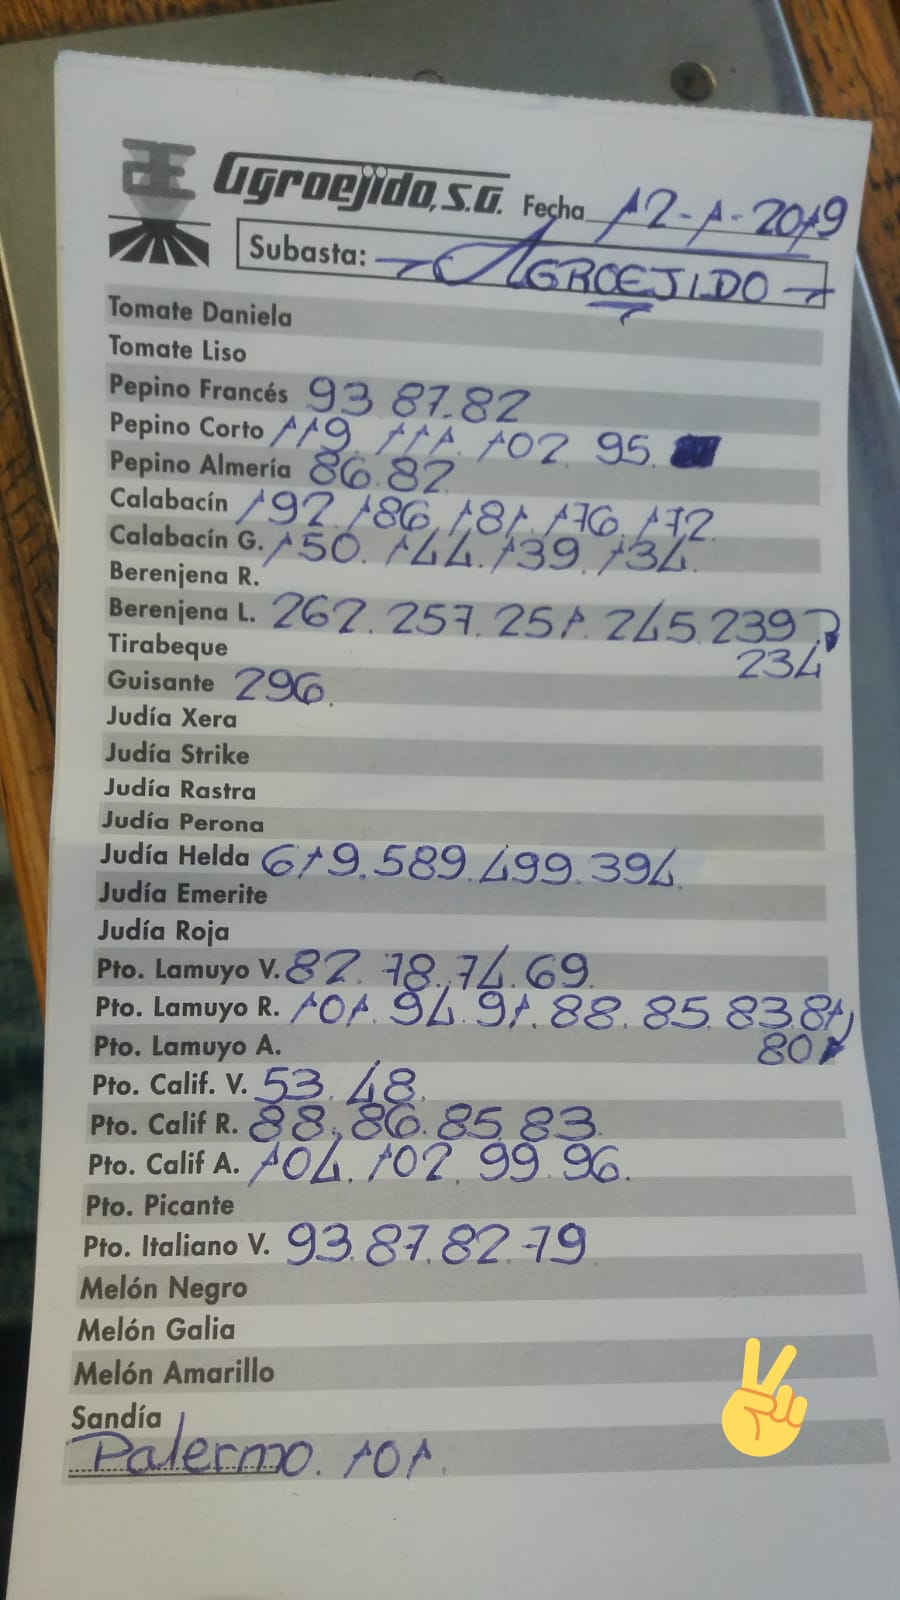 Agroejido, S.A. Fecha 12-1-2019
Subasta: AGROEJIDO
Tomate Daniela
Tomate Liso
Pepino Francés 93 87.82
Pepino Corto 119. 111. 102. 95.
Pepino Almería 86.82
Calabacín 192. 186. 181. 176. 172.
Calabacín G. 150. 144. 139. 134.
Berenjena R.
Berenjena L. 262. 257. 251. 245. 239
Tirabeque 234
Guisante 296.
Judía Xera
Judía Strike
Judía Rastra
Judía Perona
Judía Helda 619. 589. 499. 394
Judía Emerite
Judía Roja
Pto. Lamuyo V. 82. 78. 74. 69
Pto. Lamuyo R. 101. 94. 91. 88. 85. 83. 81
Pto. Lamuyo A. 80
Pto. Calif. V. 53. 48.
Pto. Calif R. 88. 86. 85. 83.
Pto. Calif A. 104. 102. 99. 96.
Pto. Picante
Pto. Italiano V. 93. 87. 82. 79
Melón Negro
Melón Galia
Melón Amarillo
Sandía
Palermo. 101.